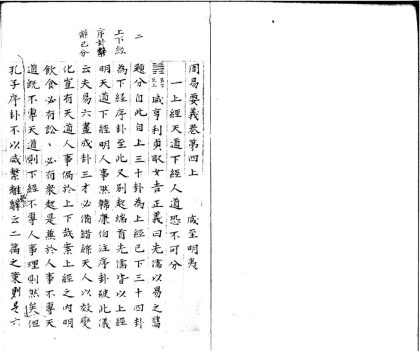 周易要義卷第四上　咸至明夷
一上經天道下經人道恐不可分
䷞咸亨利貞取女吉正義曰先儒以易之舊
題分自此自上三十卦為上經已下三十四卦
為下經序卦至此又別起端首先儒皆以上經
明天道下經明人事然韓康伯注序卦破此儀
云夫易六畫成卦三才必備錯綜天人以效變
化豈有天道人事偏於上下哉案上經之內明
飲食必有訟、必有衆起是兼於人事不專天
道既不專天道則下經不專人事理則然矣但
孔子序卦不以咸繫離繫辭云二篇之策則是六
二
上下經
序卦
辭已分